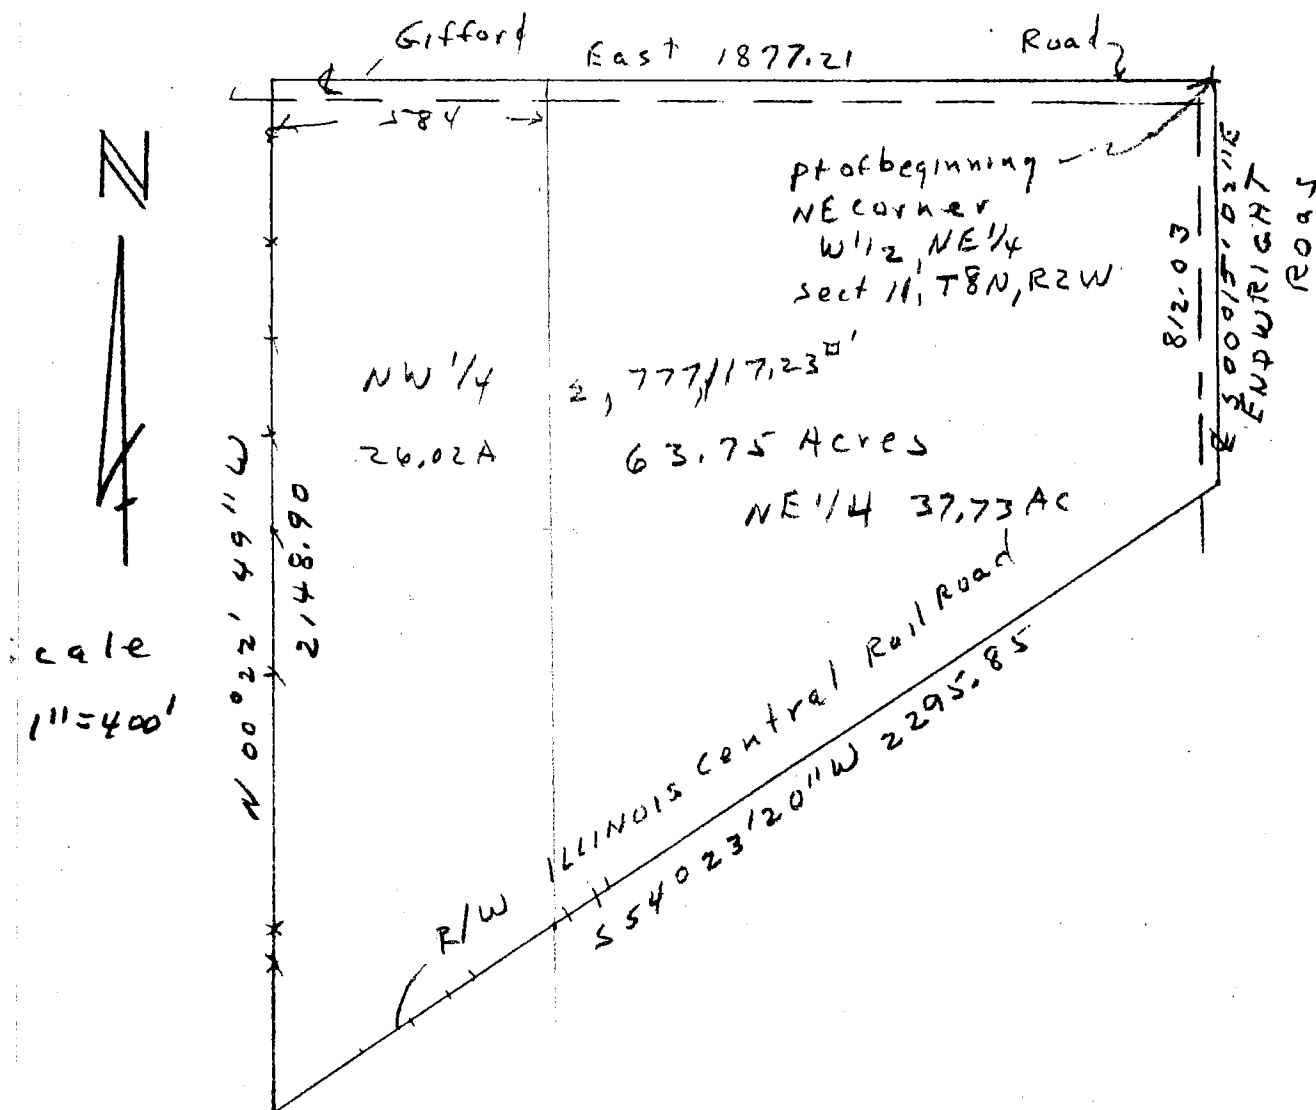 Gifford
East 1877.21
Road
584
N
pt of beginning
NE corner
W 1/2, NE 1/4
sect 11, T8N, R2W
812.03
S 00°15'02"E
ENDWRIGHT
Road
NW 1/4
2,777,117.23□'
26.02A
63.75 Acres
NE 1/4 37.73 Ac
N 00°22'49"W
2148.90
cale
1"=400'
ILLINOIS Central RailRoad
R/W
S 54°23'20"W 2295.85